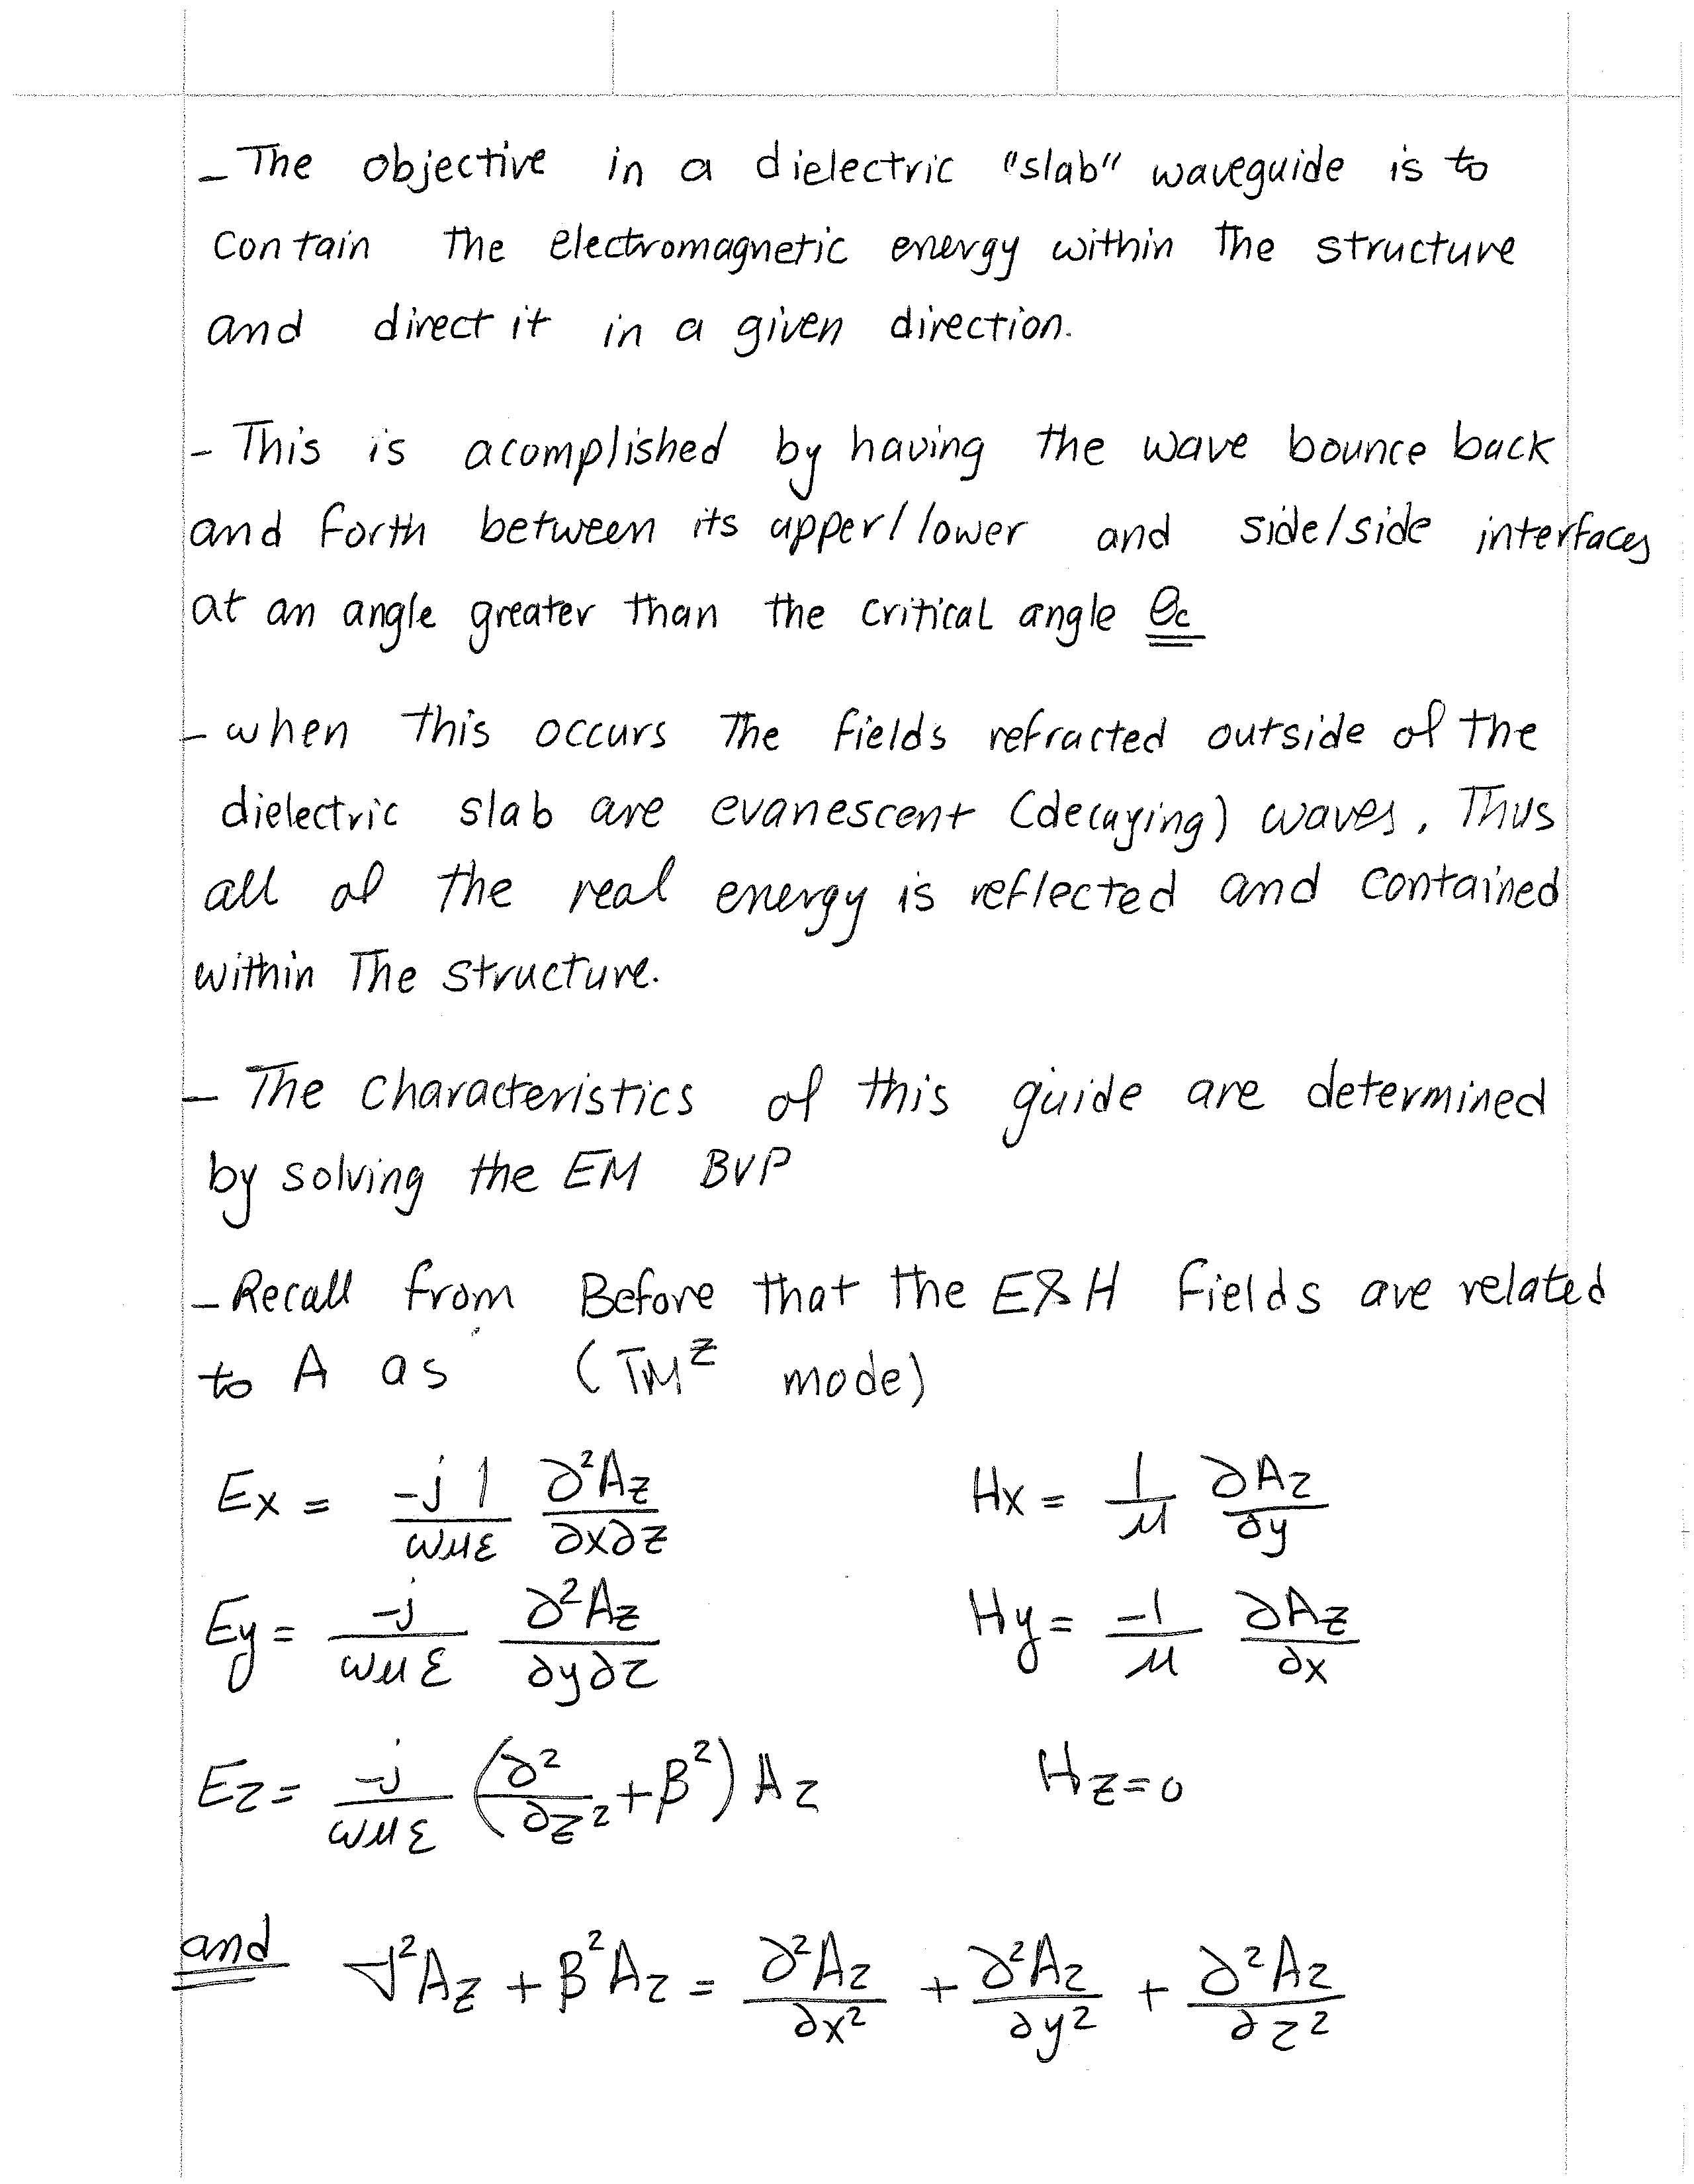 - The objective in a dielectric "slab" waveguide is to
contain the electromagnetic energy within the structure
and direct it in a given direction.
- This is acomplished by having the wave bounce back
and forth between its upper/lower and side/side interfaces
at an angle greater than the critical angle θc
- when this occurs the fields refracted outside of the
dielectric slab are evanescent (decaying) waves. Thus
all of the real energy is reflected and contained
within the structure.
- The characteristics of this guide are determined
by solving the EM BVP
- Recall from Before that the E&H fields are related
to A as (TM^z mode)
Ex = -j 1/ωμε ∂²Az/∂x∂z Hx = 1/μ ∂Az/∂y
Ey = -j/ωμε ∂²Az/∂y∂z Hy = -1/μ ∂Az/∂x
Ez = -j/ωμε (∂²/∂z² + β²) Az Hz = 0
and ∇²Az + β²Az = ∂²Az/∂x² + ∂²Az/∂y² + ∂²Az/∂z²